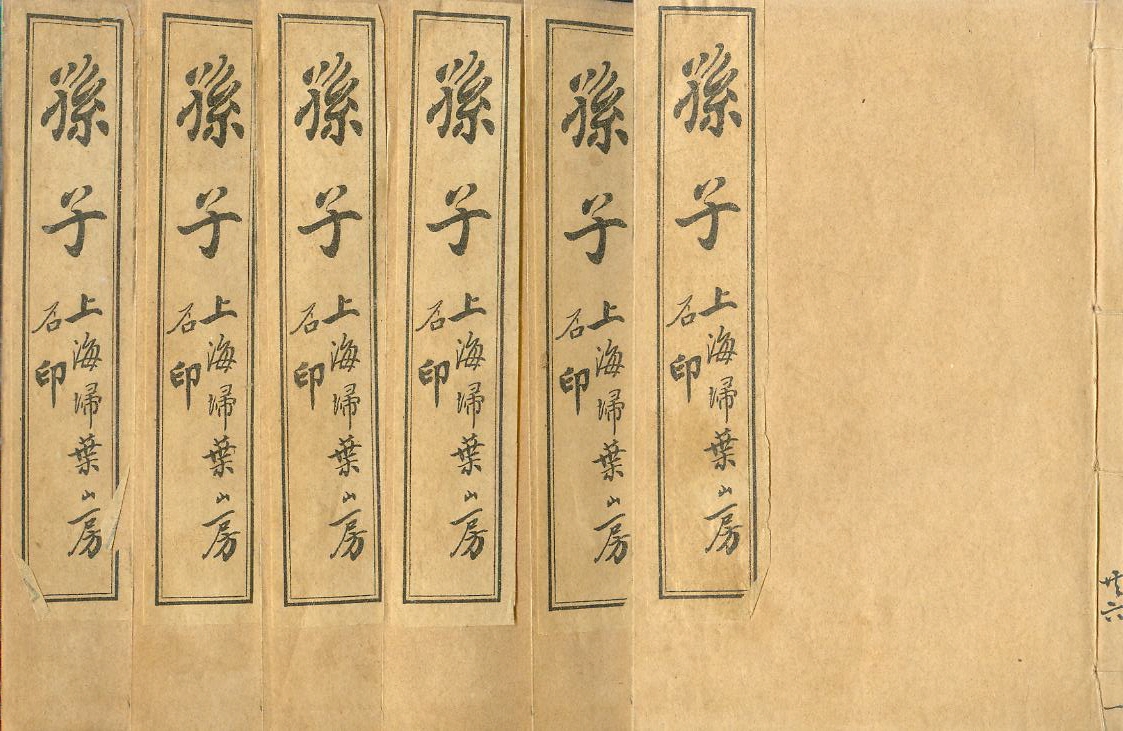 孫子
上海掃葉山房
石印
孫子
上海掃葉山房
石印
孫子
上海掃葉山房
石印
孫子
上海掃葉山房
石印
孫子
上海掃葉山房
石印
孫子
上海掃葉山房
石印
一